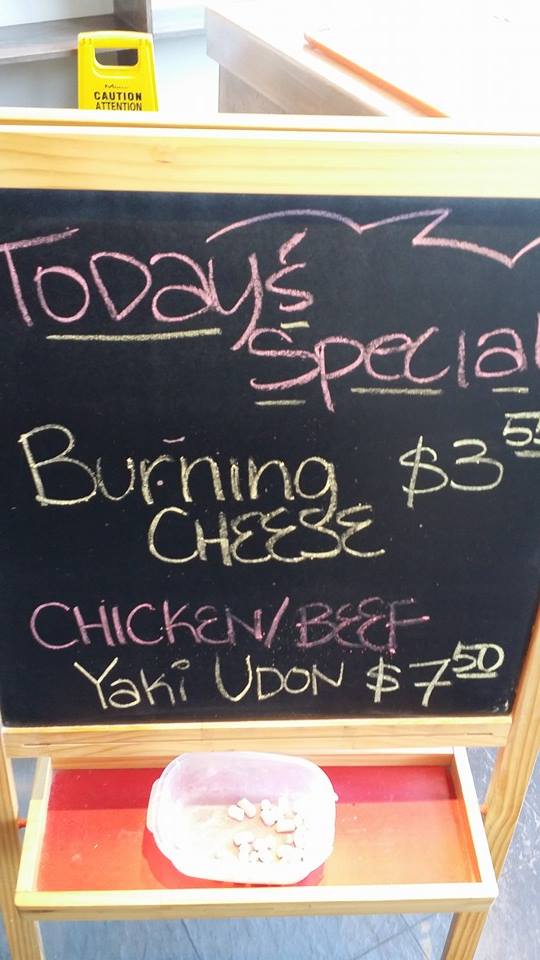 CAUTION
ATTENTION
Today's
Special
Burning $3 55
CHEESE
CHICKEN/BEEF
Yaki UDON $7 50